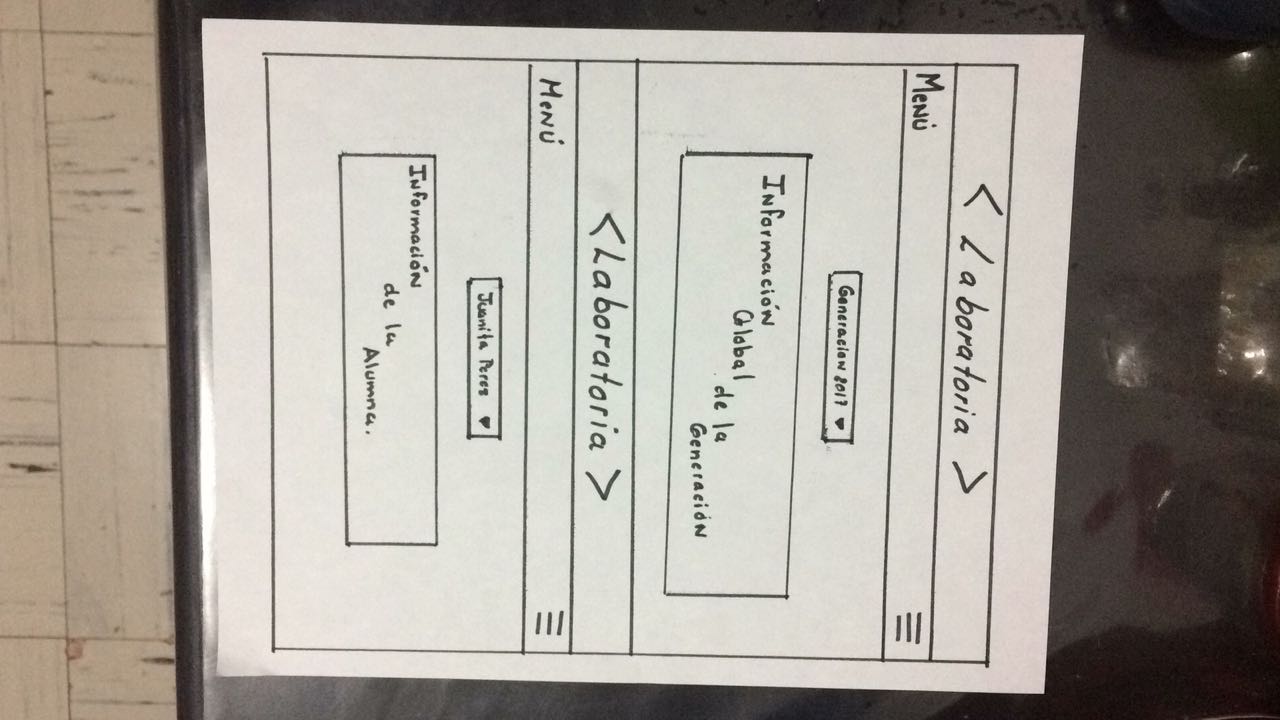 < Laboratoria >
Menú
Generacion 2017
Información
Global
de la
Generación
<Laboratoria>
Menú
Juanita Perez
Información
de la
Alumna.